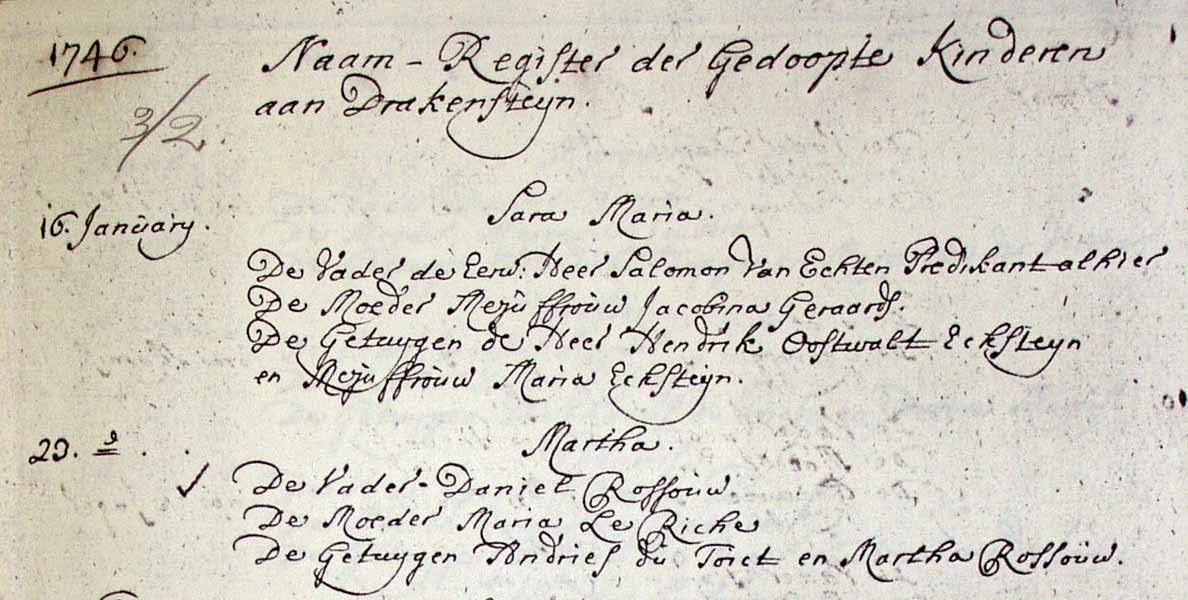 1746.
Naam - Register der Gedoopte Kinderen
aan Drakensteyn.
3/2
16. January.
Sara Maria.
De Vader de Eerw: Heer Salomon Van Echten Predikant alhier
De Moeder Mejuffrouw Jacobina Geraards.
De Getuygen de Heer Hendrik Oostwalt Ecksteyn
en Mejuffrouw Maria Ecksteyn.
23. d°
Martha.
De Vader - Daniel Rossouw
De Moeder Maria Le Riche
De Getuygen Andries du Toict en Martha Rossouw.